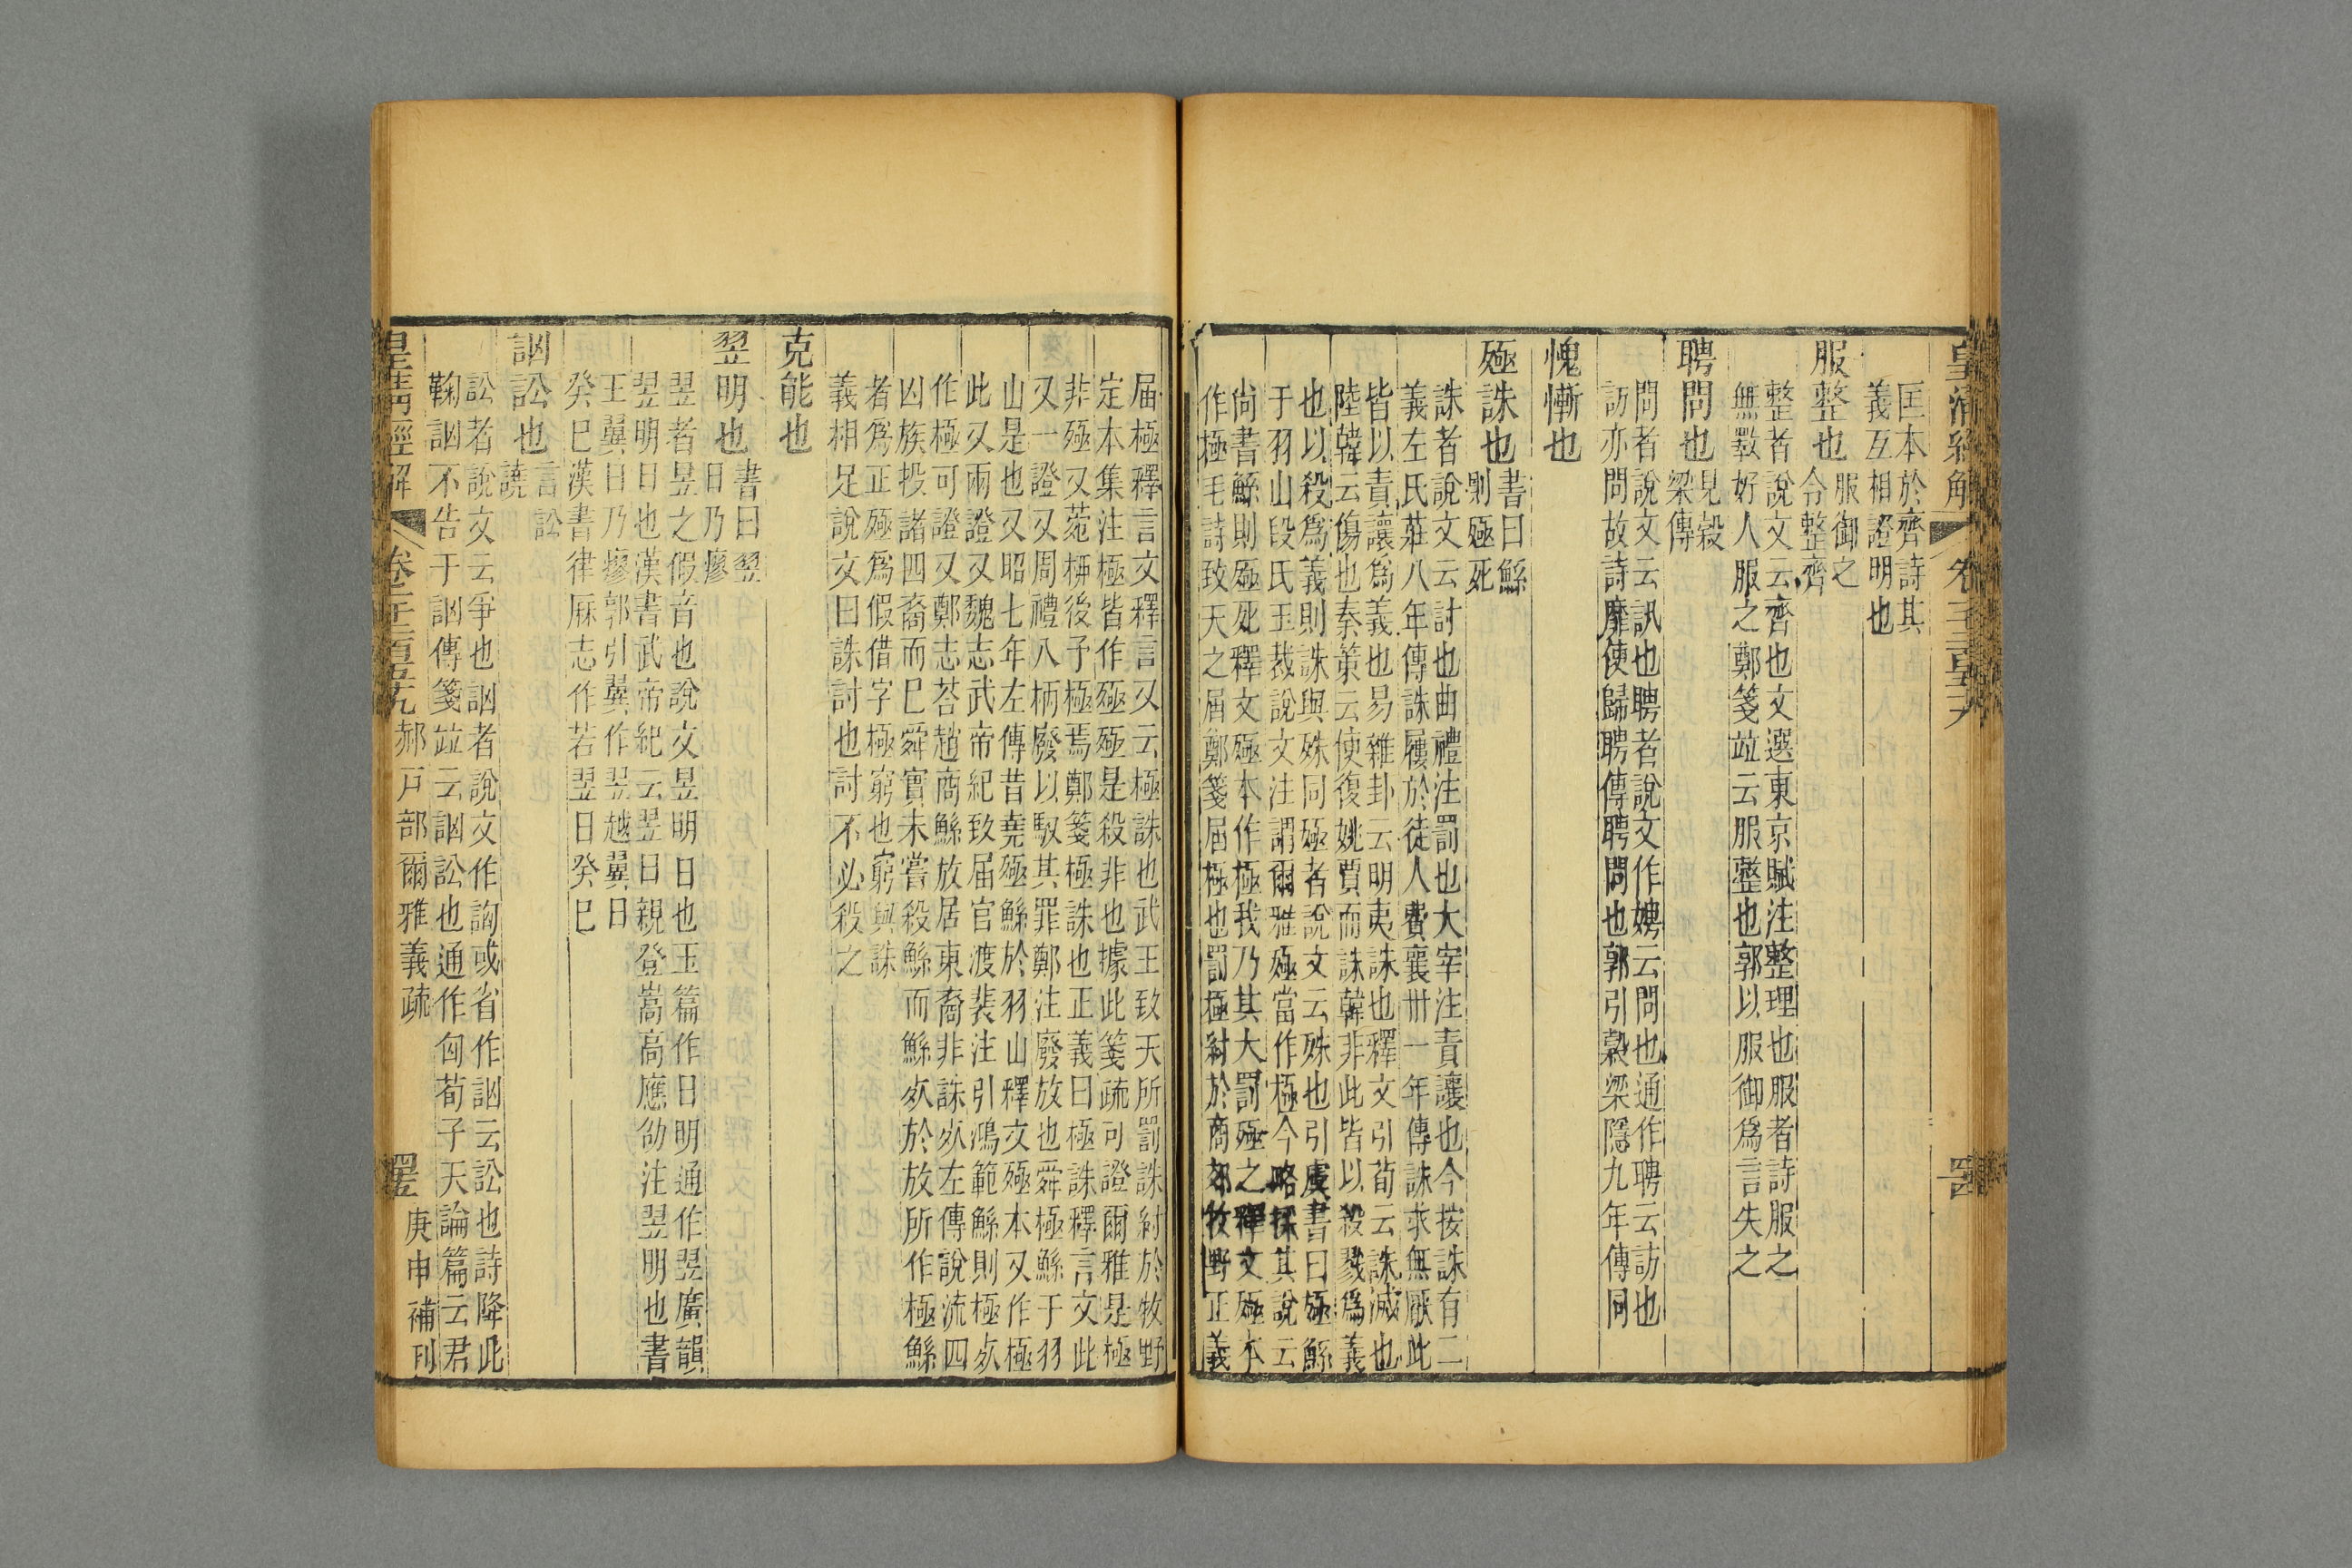 皇清經解
匡本於齊詩其
義互相證明也
服整也
服御之
令整齊
整者說文云齊也文選東京賦注整理也服者詩服之
無斁好人服之鄭箋竝云服整也郭以服御爲言失之
聘問也
見穀
梁傳
問者說文云訊也聘者說文作娉云問也通作聘云訪也
訪亦問故詩靡使歸聘傳聘問也郭引穀梁隱九年傳同
愧慚也
殛誅也
書曰鯀
則殛死
誅者說文云討也曲禮注罰也大宰注責讓也今按誅有二
義左氏莊八年傳誅屨於徒人費襄卅一年傳誅求無厭此
皆以責讓爲義也易雜卦云明夷誅也釋文引荀云誅滅也
陸韓云傷也秦策云使復姚賈而誅韓非此皆以殺戮爲義
也以殺爲義則誅與殊同殛者說文云殊也引虞書曰殛鯀
于羽山段氏玉裁說文注謂爾雅殛當作極今略採其說云
尙書鯀則殛死釋文殛本作極我乃其大罰殛之釋文殛本
作極毛詩致天之屆鄭箋屆極也罰極紂於商郊牧野正義
屆極釋言文釋言又云極誅也武王致天所罰誅紂於牧野
定本集注極皆作殛殛是殺非也據此箋疏可證爾雅是極
非殛又菀柳後予極焉鄭箋極誅也正義曰極誅釋言文此
又一證又周禮八柄廢以馭其罪鄭注廢放也舜極鯀于羽
山是也又昭七年左傳昔堯殛鯀於羽山釋文殛本又作極
此又兩證又魏志武帝紀致屆官渡裴注引鴻範鯀則極死
作極可證又鄭志荅趙商鯀放居東裔非誅死左傳說流四
凶族投諸四裔而已舜實未嘗殺鯀而鯀死於放所作極鯀
者爲正殛爲假借字極窮也窮與誅
義相足說文曰誅討也討不必殺之
克能也
翌明也
書曰翌
日乃瘳
翌者昱之假音也說文昱明日也玉篇作日明通作翌廣韻
翌明日也漢書武帝紀云翌日親登嵩高應劭注翌明也書
王翼日乃瘳郭引翼作翌越翼日
癸巳漢書律厤志作若翌日癸巳
訩訟也
言訟
譊
訟者說文云爭也訩者說文作詾或省作訩云訟也詩降此
鞠訩不告于訩傳箋竝云訩訟也通作匈荀子天論篇云君
皇清經解
卷千二百五十九
郝戸部爾雅義疏
庚申補刊